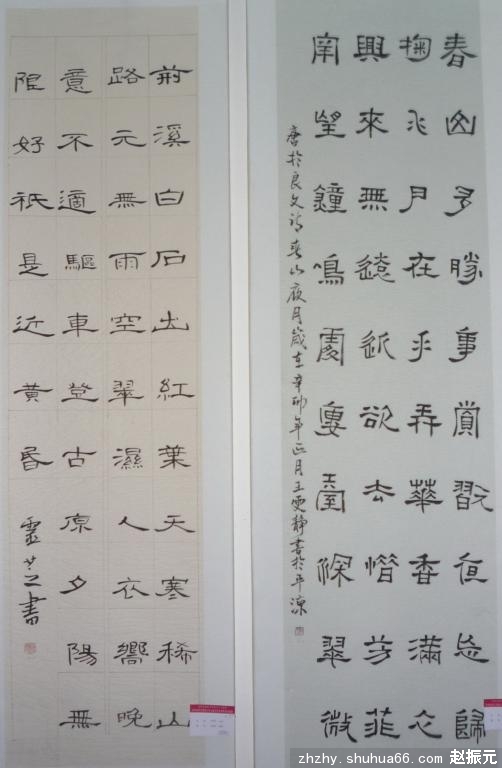 春山多勝事賞翫夜忘歸
掬水月在手弄華香滿衣
興來無遠近欲去惜芳菲
南望鐘鳴處婁臺深翠微
唐於良史詩春山夜月歲在辛卯年正月王雯靜書於平涼
荊溪白石出紅葉天寒稀山
路元無雨空翠濕人衣嚮晚
意不適驅車登古原夕陽無
限好祇是近黃昏
靈芝書
zhzhy.shuhua66.com 赵振元